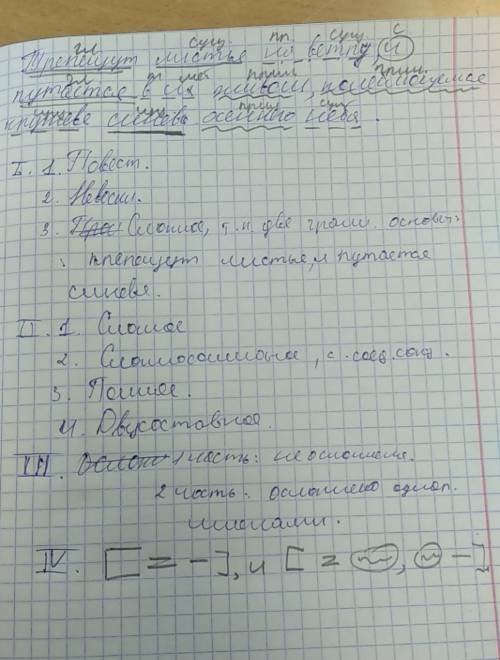 гл сущ. пр. сущ. с
Трепещут листья на ветру, и
гл пр мест прил прич.
путается в их живом, колеблющемся
сущ. сущ прил сущ
кружеве синева осеннего неба.
I. 1. Повест.
2. Невоскл.
3. Сложное, т.к. две грам. основы:
трепещут листья, и путается
синева.
II. 1. Сложное
2. Сложносочинённое, с соед. союз.
3. Полное.
4. Двусоставное.
III. 1 часть: не осложнена.
2 часть: осложнено однор.
членами.
IV. [= -], и [= , -].